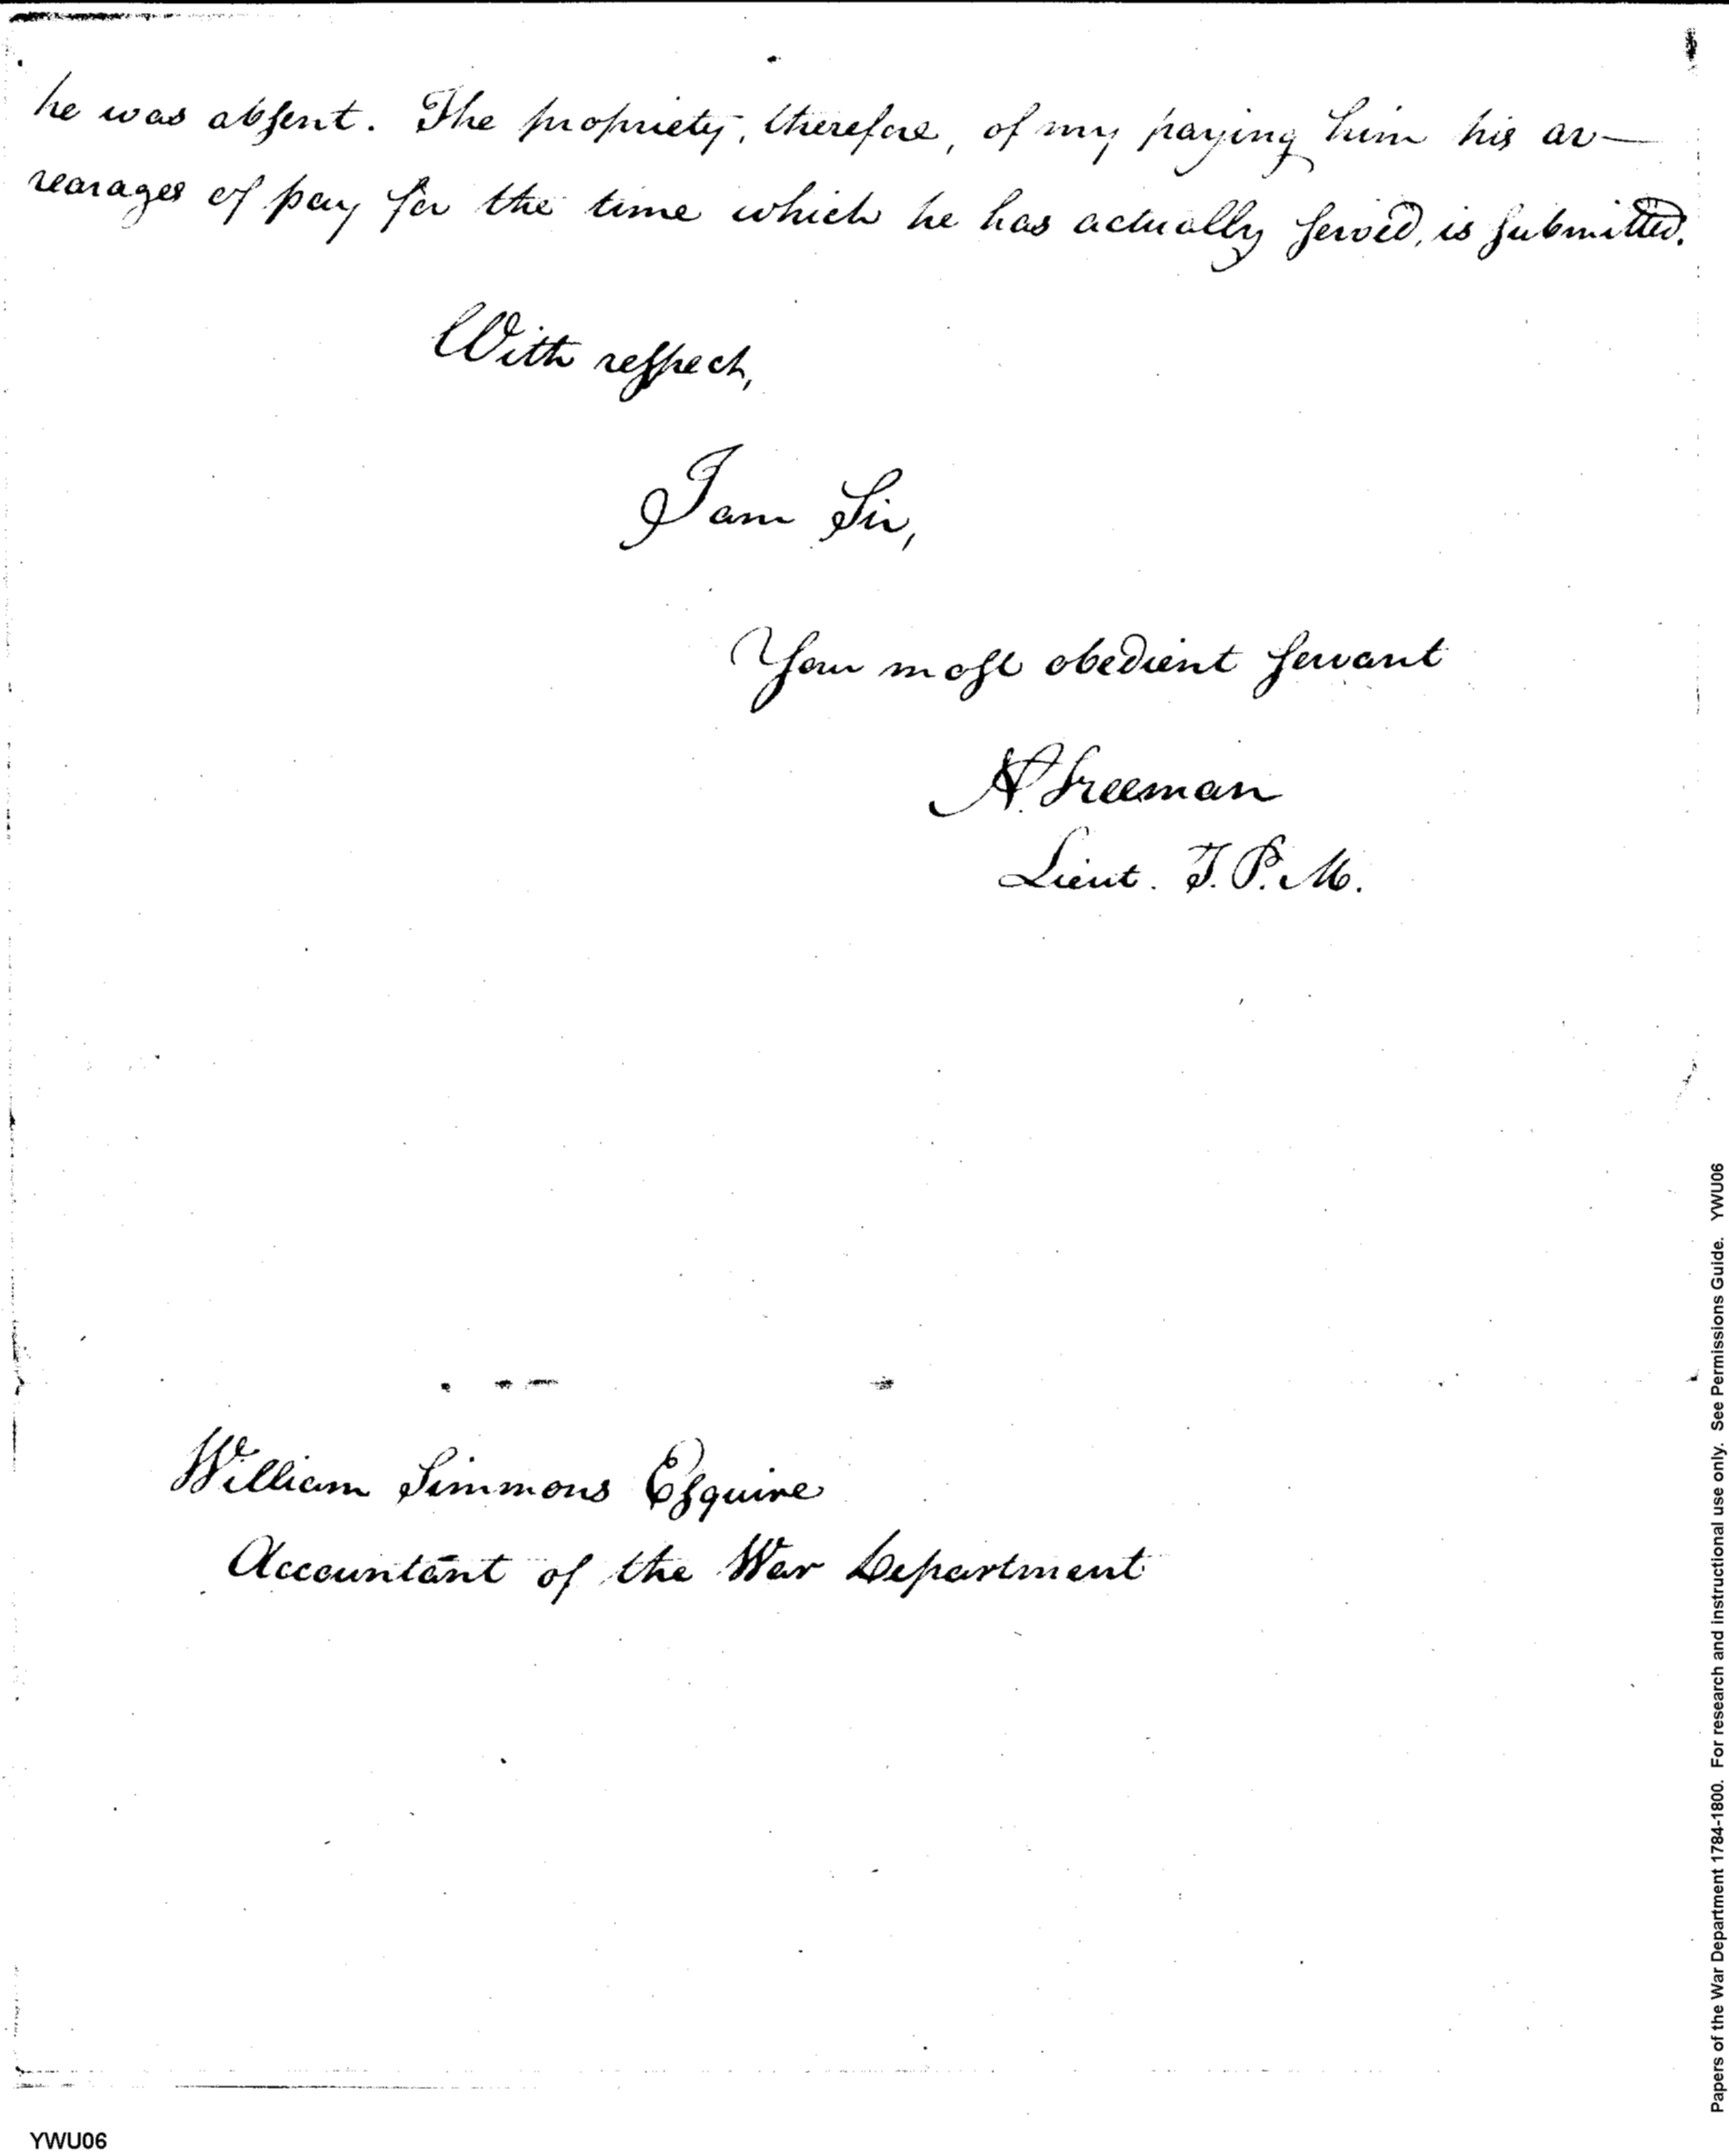 he was absent. The propriety, therefore, of my paying him his ar—
rearages of pay for the time which he has actually served, is submitted.
With respect,
I am Sir,
Your most obedient servant
A. Freeman
Lieut. T. P. M.
William Simmons Esquire
Accountant of the War Department
Papers of the War Department 1784-1800. For research and instructional use only. See Permissions Guide. YWU06
YWU06